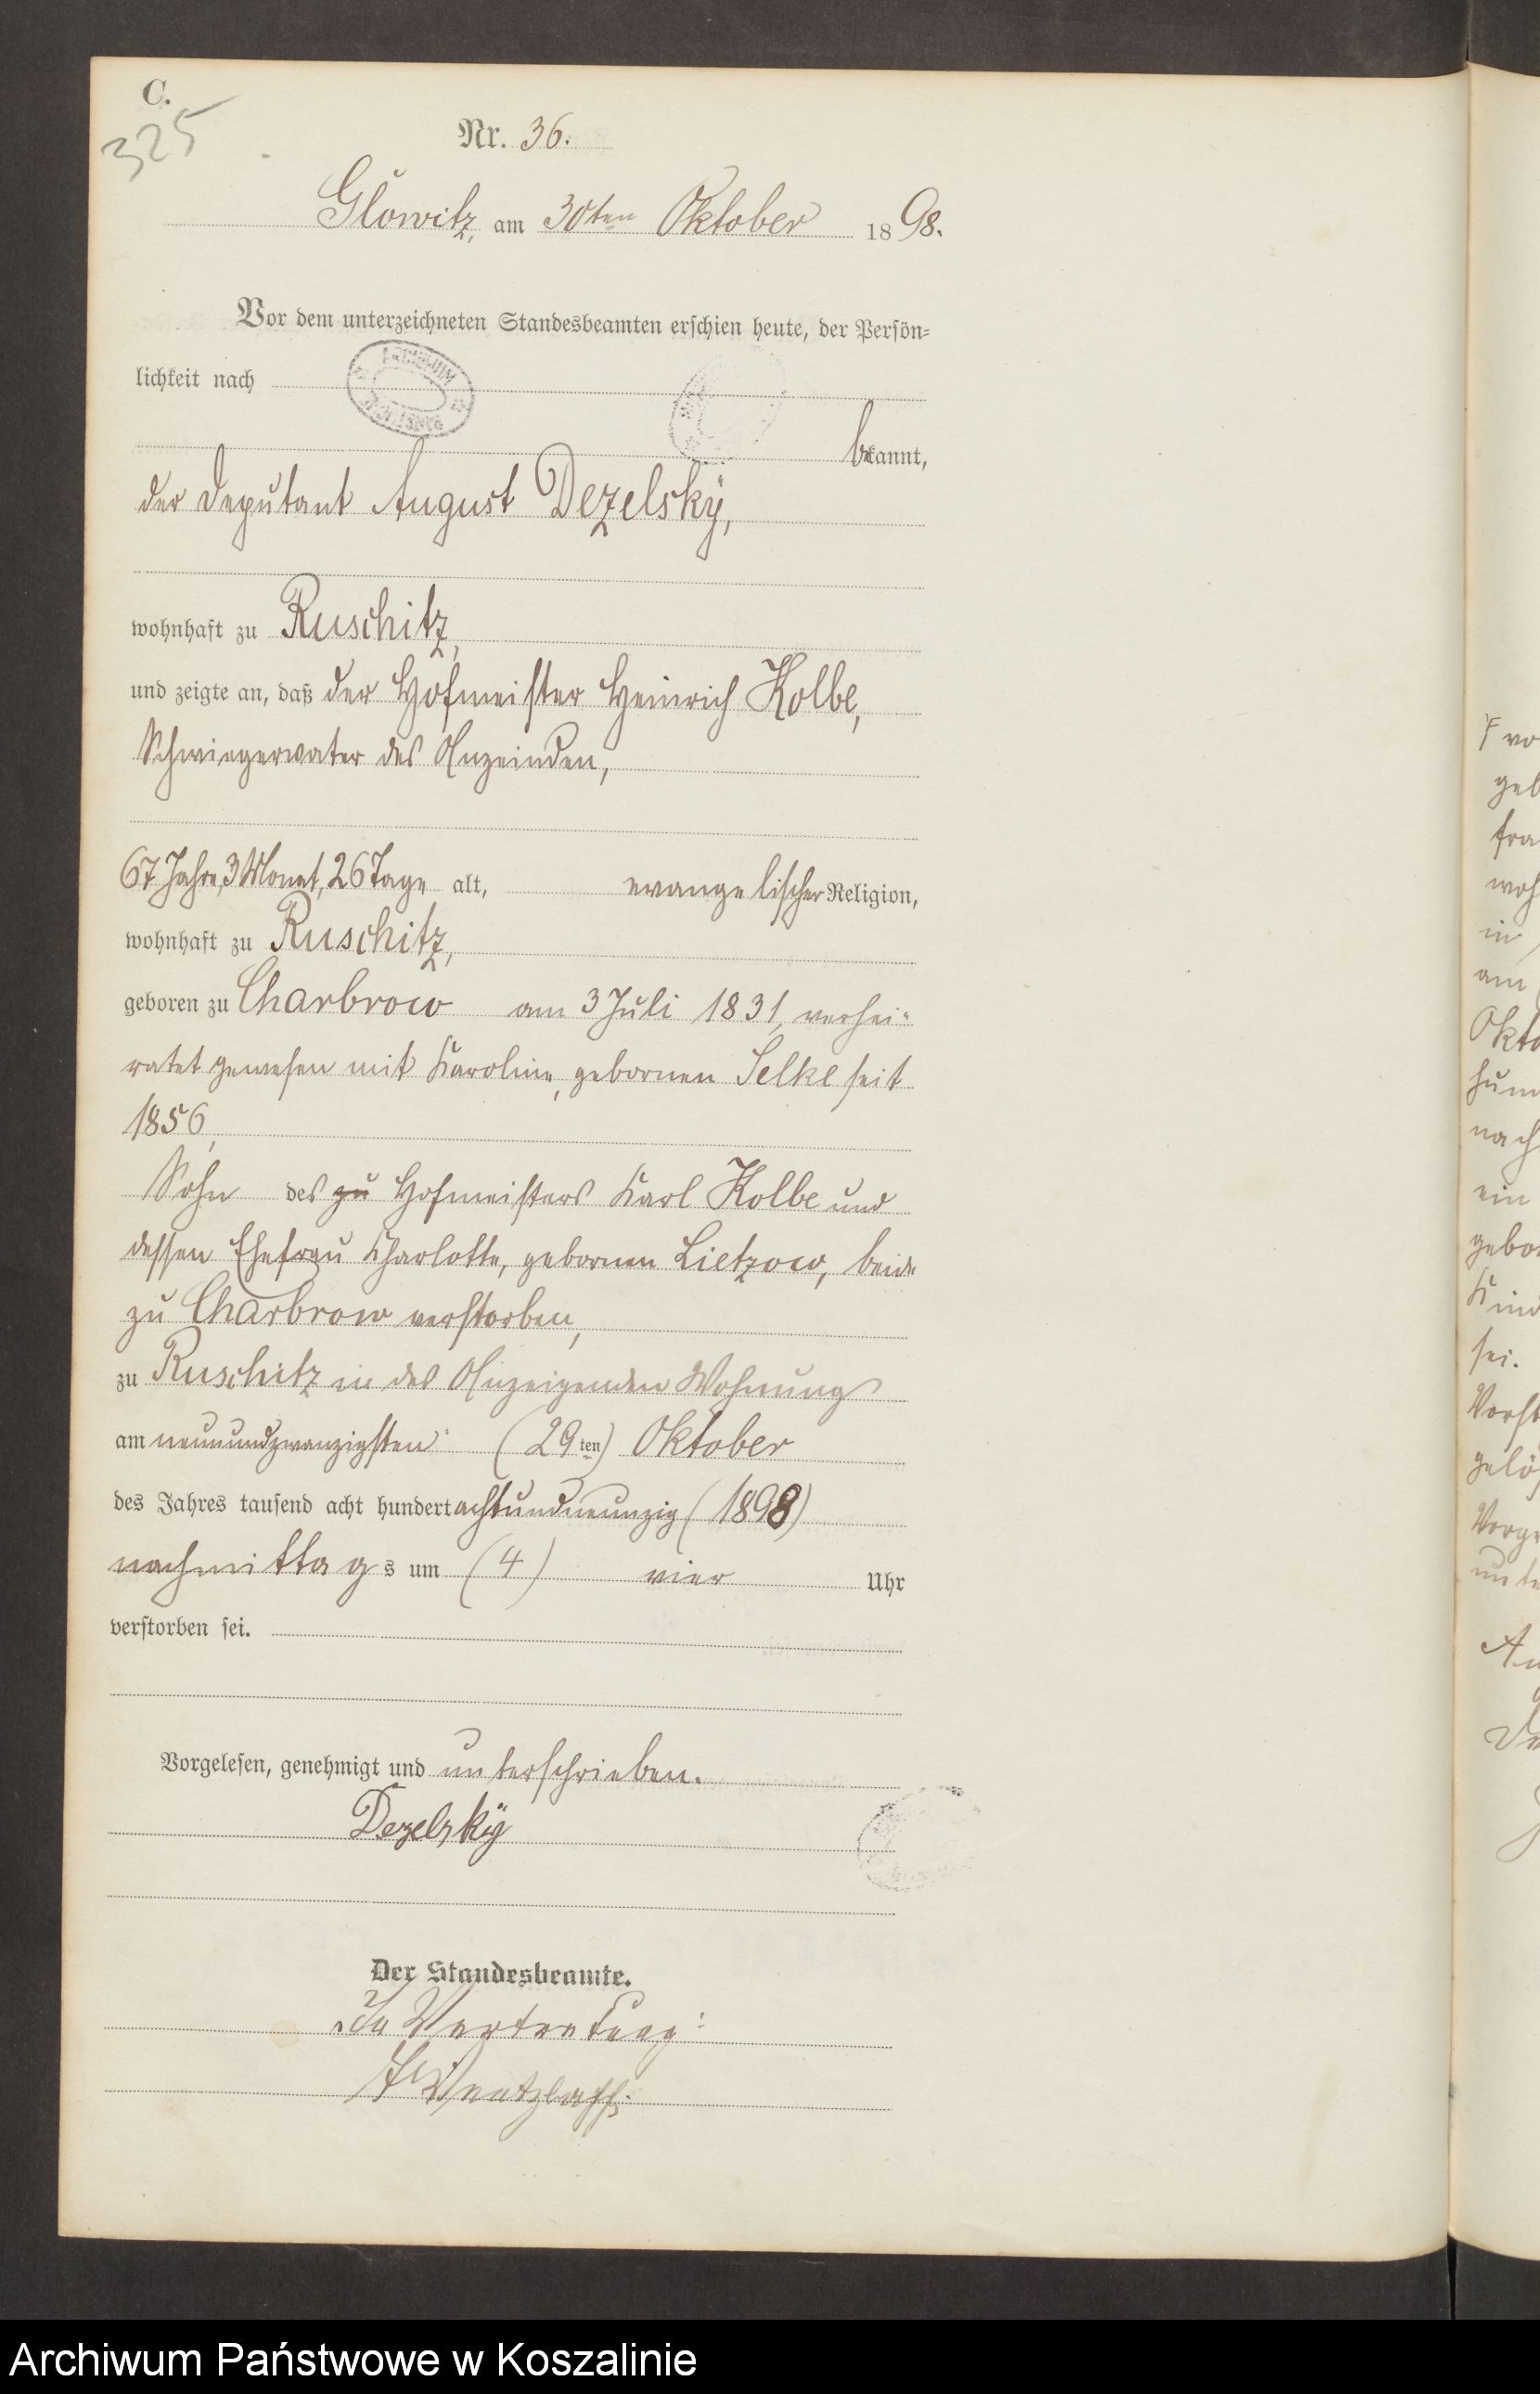 C.
325
Nr. 36.
Glowitz, am 30ten Oktober 1898.
Vor dem unterzeichneten Standesbeamten erschien heute, der Persön-
lichkeit nach
bekannt,
der Deputant August Dezelsky,
wohnhaft zu Ruschitz,
und zeigte an, daß der Hofmeister Heinrich Kolbe,
Schwiegervater des Anzeinden,
67 Jahre, 3 Monat, 26 Tage alt, evangelischer Religion,
wohnhaft zu Ruschitz,
geboren zu Charbrow am 3 Juli 1831, verhei-
ratet gewesen mit Karoline, gebornen Selke seit
1856,
Sohn des zu Hofmeisters Karl Kolbe und
dessen Ehefrau Charlotte, gebornen Lietzow, beide
zu Charbrow verstorben,
zu Ruschitz in des Anzeigenden Wohnung
am neunundzwanzigsten (29ten) Oktober
des Jahres tausend acht hundert achtundneunzig (1898)
nachmittags um (4) vier Uhr
verstorben sei.
Vorgelesen, genehmigt und unterschrieben.
Dezelsky
Der Standesbeamte.
In Vertretung:
Wentzlaff.
ARCHIWUM
F vo
geb
fra
woh
in
am
Okto
hun
nach
ein
gebo
Kind
sei.
Vorst
gelö
Vorge
unte
Archiwum Państwowe w Koszalinie